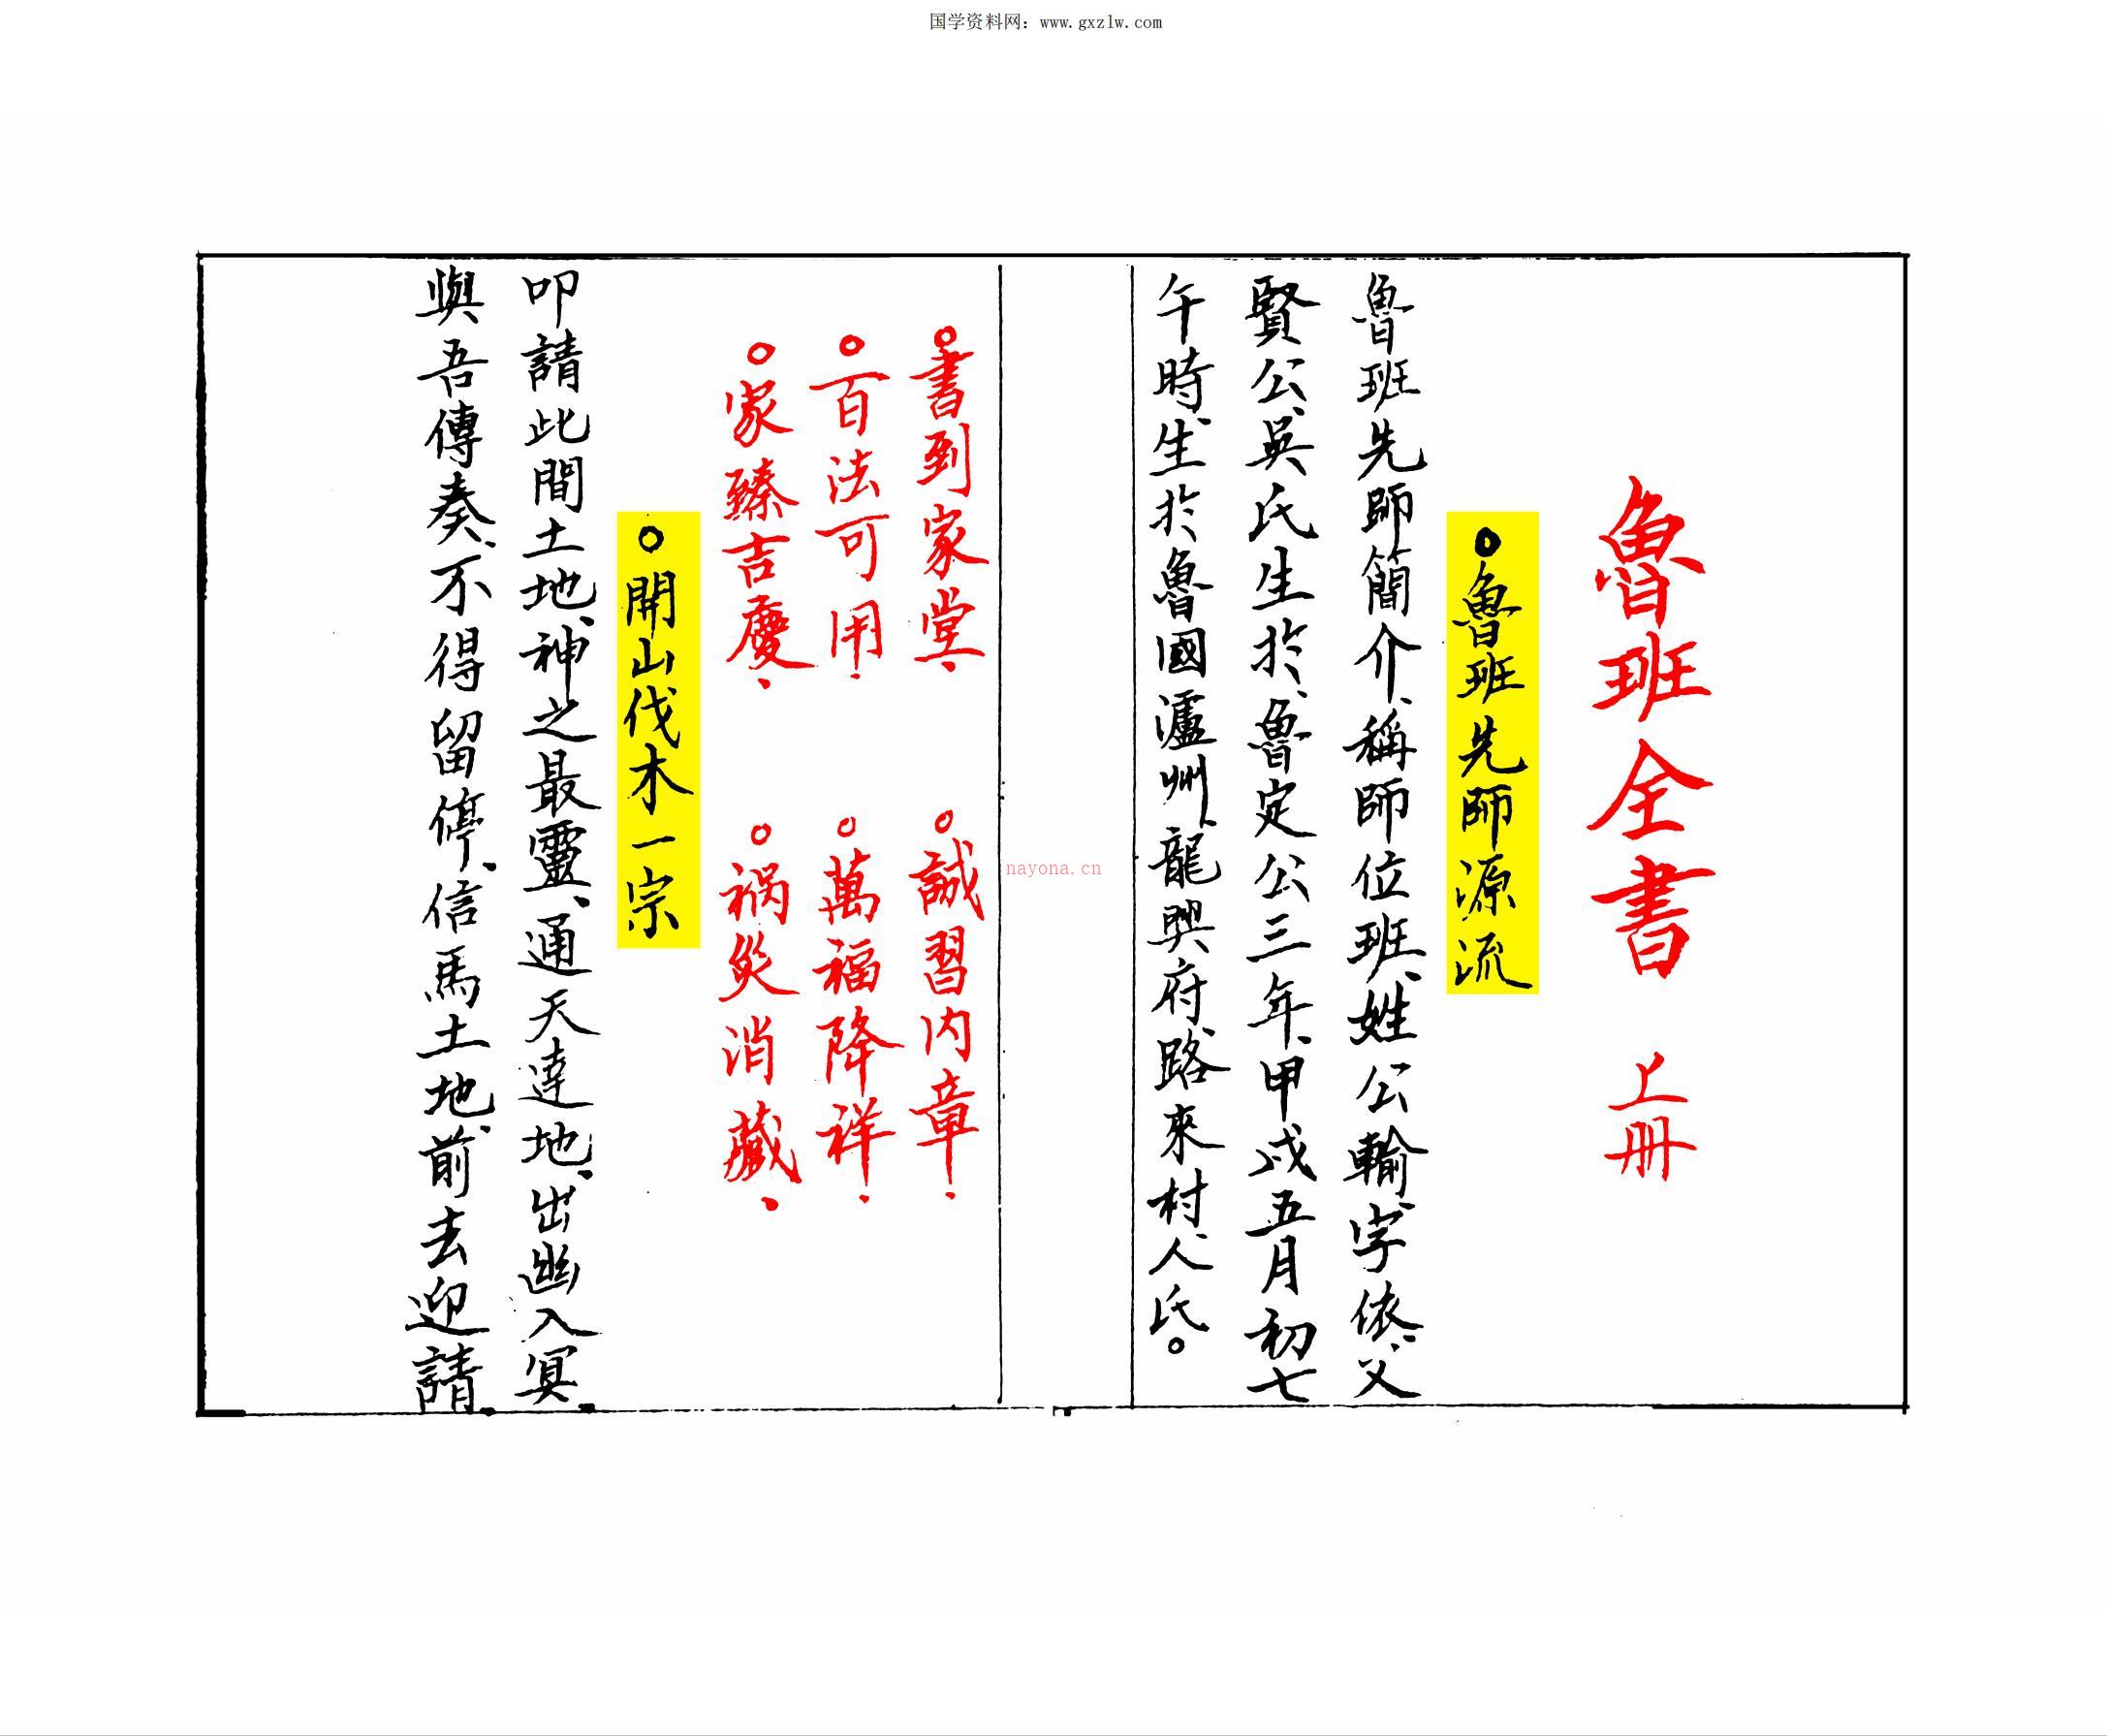 国学资料网：www.gxzlw.com
魯班全書 上冊
○魯班先師源流
魯班先師簡介、稱師位班、姓公輸、字依、父
賢公、吳氏生於、魯定公三年、甲戌五月初七
午時、生於魯國瀘州、龍興府、路來村、人氏。
○書到家堂、 ○誠習內章、
○百法可用、 ○萬福降祥、
○家臻吉慶、 ○禍災消藏、
○開山伐木一宗
叩請此間土地、神之最靈、通天達地、出幽入冥、
與吾傳奏、不得留停、信馬土地、前去迎請、
nayona.cn